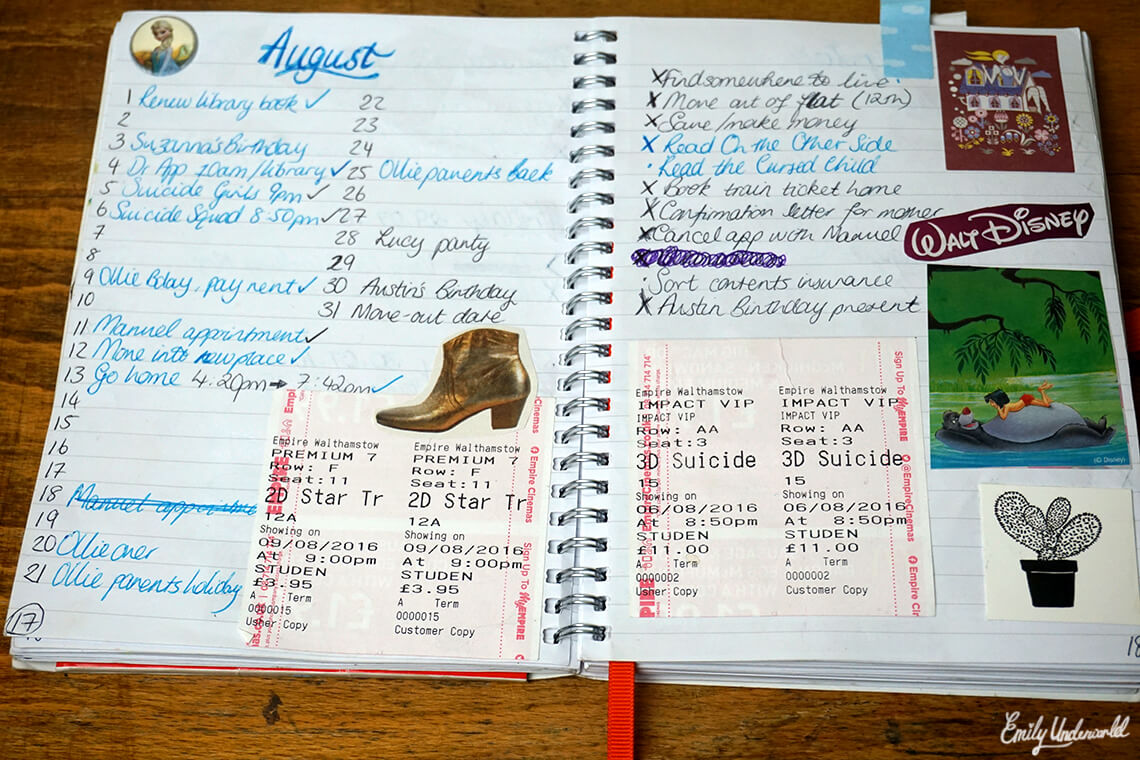 August
1 Renew library book ✓
2
3 Suzanna's Birthday
4 Dr App 10am/library ✓
5 Suicide Girls 9pm ✓
6 Suicide Squad 8:50pm ✓
7
8
9 Ollie Bday, pay rent ✓
10
11 Manuel appointment ✓
12 Move into new place ✓
13 Go home 4:20pm → 7:42pm ✓
14
15
16
17
18 Manuel appointment
19
20 Ollie over
21 Ollie parents holiday
22
23
24
25 Ollie parents back
26
27
28 Lucy party
29
30 Austin's Birthday
31 Move-out date
17
Empire Walthamstow
PREMIUM 7
Row: F
Seat:11
2D Star Tr
12A
Showing on
09/08/2016
At 9:00pm
STUDEN
£3.95
A Term
0000015
Usher Copy
Empire Walthamstow
PREMIUM 7
Row: F
Seat:11
2D Star Tr
12A
Showing on
09/08/2016
At 9:00pm
STUDEN
£3.95
A Term
0000015
Customer Copy
Empire Cinemas
Sign Up To MyEMPIRE
X Find somewhere to live
X Move out of flat (12th)
X Save/make money
X Read On the Other Side
· Read the Cursed Child
X Book train ticket home
X Confirmation letter for mother
X Cancel app with Manuel
· Sort contents insurance
X Austin Birthday present
WALT DISNEY
(© Disney)
Empire Walthamstow
IMPACT VIP
IMPACT VIP
Row: AA
Seat:3
3D Suicide
15
Showing on
06/08/2016
At 8:50pm
STUDEN
£11.00
A Term
0000002
Usher Copy
Empire Walthamstow
IMPACT VIP
IMPACT VIP
Row: AA
Seat:3
3D Suicide
15
Showing on
06/08/2016
At 8:50pm
STUDEN
£11.00
A Term
0000002
Customer Copy
Sign Up To MyEMPIRE
@EmpireCinemas
Empire Cin
18
Emily Underworld